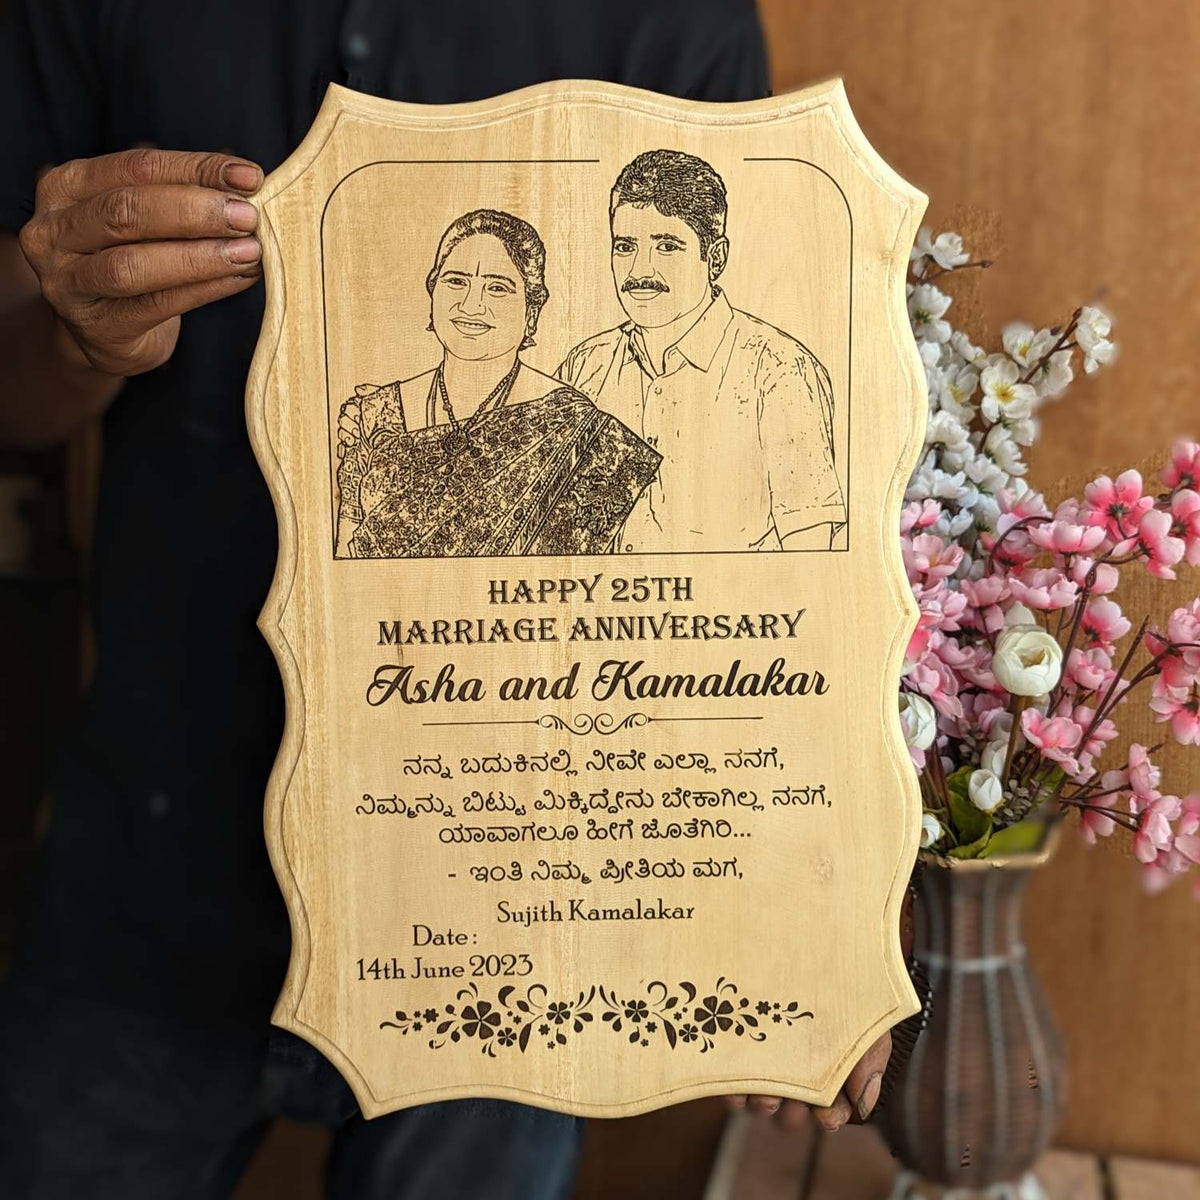 HAPPY 25TH
MARRIAGE ANNIVERSARY
Asha and Kamalakar
ನನ್ನ ಬದುಕಿನಲ್ಲಿ ನೀವೇ ಎಲ್ಲಾ ನನಗೆ,
ನಿಮ್ಮನ್ನು ಬಿಟ್ಟು ಮಿಕ್ಕಿದ್ದೇನು ಬೇಕಾಗಿಲ್ಲ ನನಗೆ,
ಯಾವಾಗಲೂ ಹೀಗೆ ಜೊತೆಗಿರಿ...
- ಇಂತಿ ನಿಮ್ಮ ಪ್ರೀತಿಯ ಮಗ,
Sujith Kamalakar
Date:
14th June 2023